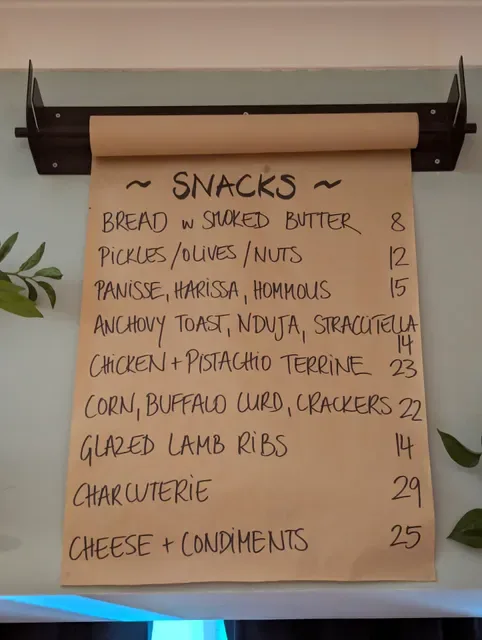 ~ SNACKS ~
BREAD w SMOKED BUTTER 8
PICKLES/OLIVES/NUTS 12
PANISSE, HARISSA, HOMMOUS 15
ANCHOVY TOAST, NDUJA, STRACCITELLA
14
CHICKEN + PISTACHIO TERRINE 23
CORN, BUFFALO CURD, CRACKERS 22
GLAZED LAMB RIBS 14
CHARCUTERIE 29
CHEESE + CONDIMENTS 25